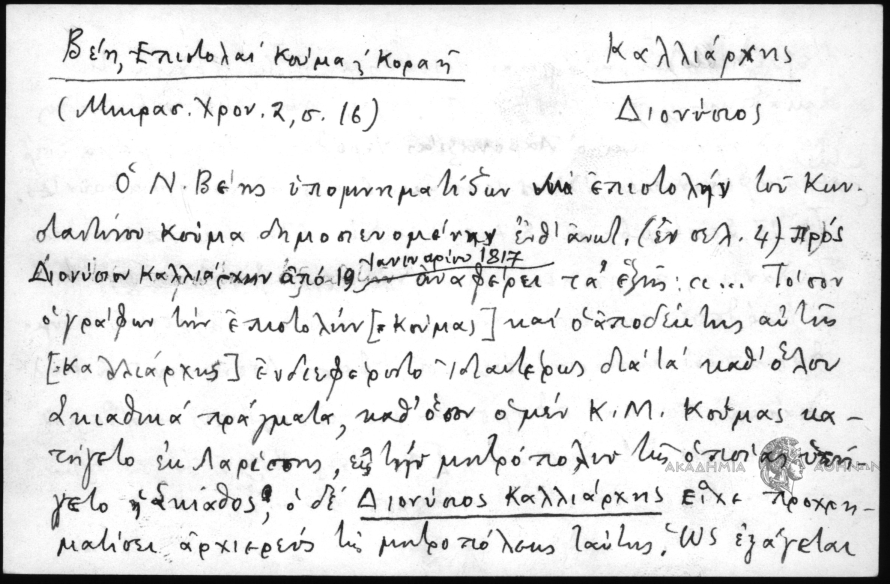 Βέη, Ἐπιστολαί Κούμα, Κοραῆ
Καλλιάρχης
(Μικρασ. Χρον. 2, σ. 16)
Διονύσιος
Ὁ Ν. Βέης ὑπομνηματίζων ἐπιστολήν τοῦ Κων-
σταντίνου Κούμα δημοσιευομένην ἐνθ' ἀνωτ. (ἐν σελ. 4) πρός
Διονύσιον Καλλιάρχην ἀπό 19 Ἰανουαρίου 1817 ἀναφέρει τά ἑξῆς: "... Τόσον
ὁ γράφων τήν ἐπιστολήν [Κούμας] καί ὁ ἀποδέκτης αὐτῆς
[Καλλιάρχης] ἐνδιεφέροντο ἰδιαιτέρως διά τά καθ' ὅλου
Σκιαθικά πράγματα, καθ' ὅσον ὁ μέν Κ.Μ. Κούμας κα-
τήγετο ἐκ Λαρίσσης, εἰς τήν μητρόπολιν τῆς ὁποίας ὑπή-
γετο ἡ Σκίαθος, ὁ δέ Διονύσιος Καλλιάρχης εἶχε προχρη-
ματίσει ἀρχιερεύς τῆς μητροπόλεως ταύτης. Ὡς ἐξάγεται
ΑΚΑΔΗΜΙΑ ΑΘΗΝΩΝ